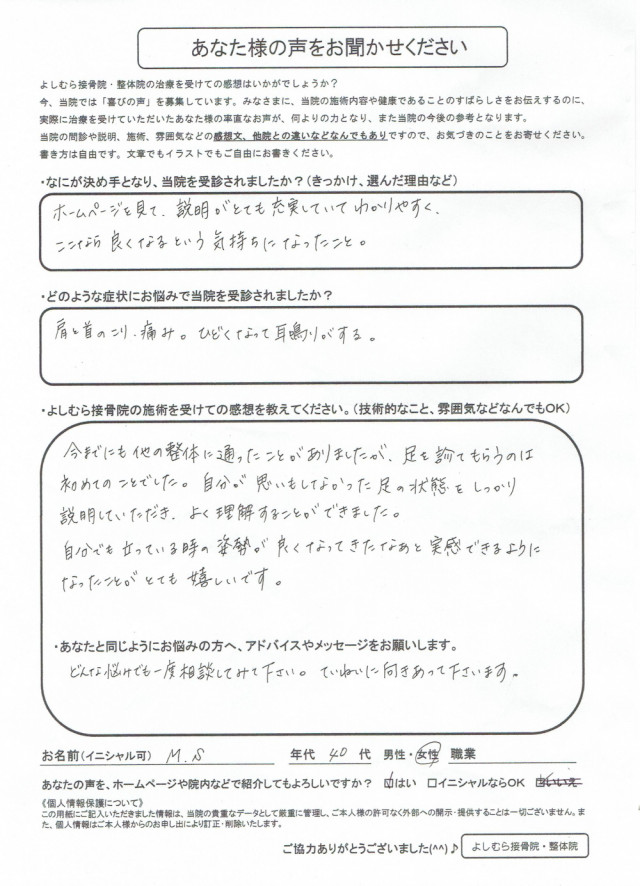 あなた様の声をお聞かせください
よしむら接骨院・整体院の治療を受けての感想はいかがでしょうか？
今、当院では「喜びの声」を募集しています。みなさまに、当院の施術内容や健康であることのすばらしさをお伝えするのに、
実際に治療を受けていただいたあなた様の率直なお声が、何よりの力となり、また当院の今後の参考となります。
当院の問診や説明、施術、雰囲気などの感想文、他院との違いなどなんでもありですので、お気づきのことをお寄せください。
書き方は自由です。文章でもイラストでもご自由にお書きください。
・なにが決め手となり、当院を受診されましたか？（きっかけ、選んだ理由など）
ホームページを見て、説明がとても充実していてわかりやすく、
ここなら良くなるという気持ちになったこと。
・どのような症状にお悩みで当院を受診されましたか？
肩と首のこり、痛み。ひどくなって耳鳴りがする。
・よしむら接骨院の施術を受けての感想を教えてください。（技術的なこと、雰囲気などなんでもOK）
今までにも他の整体に通ったことがありましたが、足を診てもらうのは
初めてのことでした。自分が思いもしなかった足の状態をしっかり
説明していただき、よく理解することができました。
自分でも立っている時の姿勢が良くなってきたなあと実感できるように
なったことがとても嬉しいです。
・あなたと同じようにお悩みの方へ、アドバイスやメッセージをお願いします。
どんな悩みでも一度相談してみて下さい。ていねいに向きあって下さいます。
お名前（イニシャル可） M.S 年代 40 代 男性・女性 職業
あなたの声を、ホームページや院内などで紹介してもよろしいですか？ ☑はい □イニシャルならOK □いいえ
《個人情報保護について》
この用紙にご記入いただきました情報は、当院の貴重なデータとして厳重に管理し、ご本人様の許可なく外部への開示・提供することは一切ございません。ま
た、個人情報はご本人様からのお申し出により訂正・削除いたします。
ご協力ありがとうございました(^^)♪ よしむら接骨院・整体院